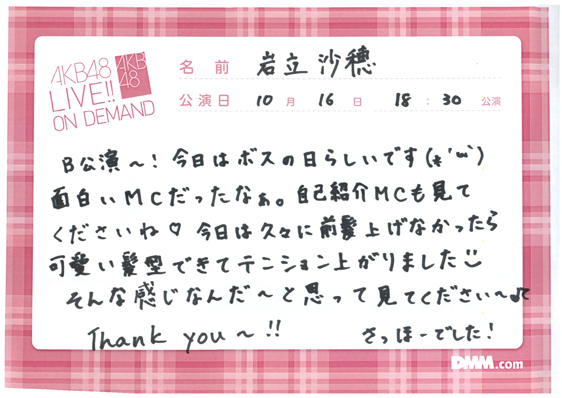 AKB48
LIVE!!
ON DEMAND
AKB
48
名前 岩立沙穂
公演日 10月 16日 18:30公演
B公演〜!今日はボスの日らしいです(*'ω')
面白いMCだったなぁ。自己紹介MCも見て
くださいね♡今日は久々に前髪上げなかったら
可愛い髪型できてテンション上がりました
そんな感じなんだ〜と思って見てください〜♪
Thank you〜!!
さっほーでした!
DMM.com